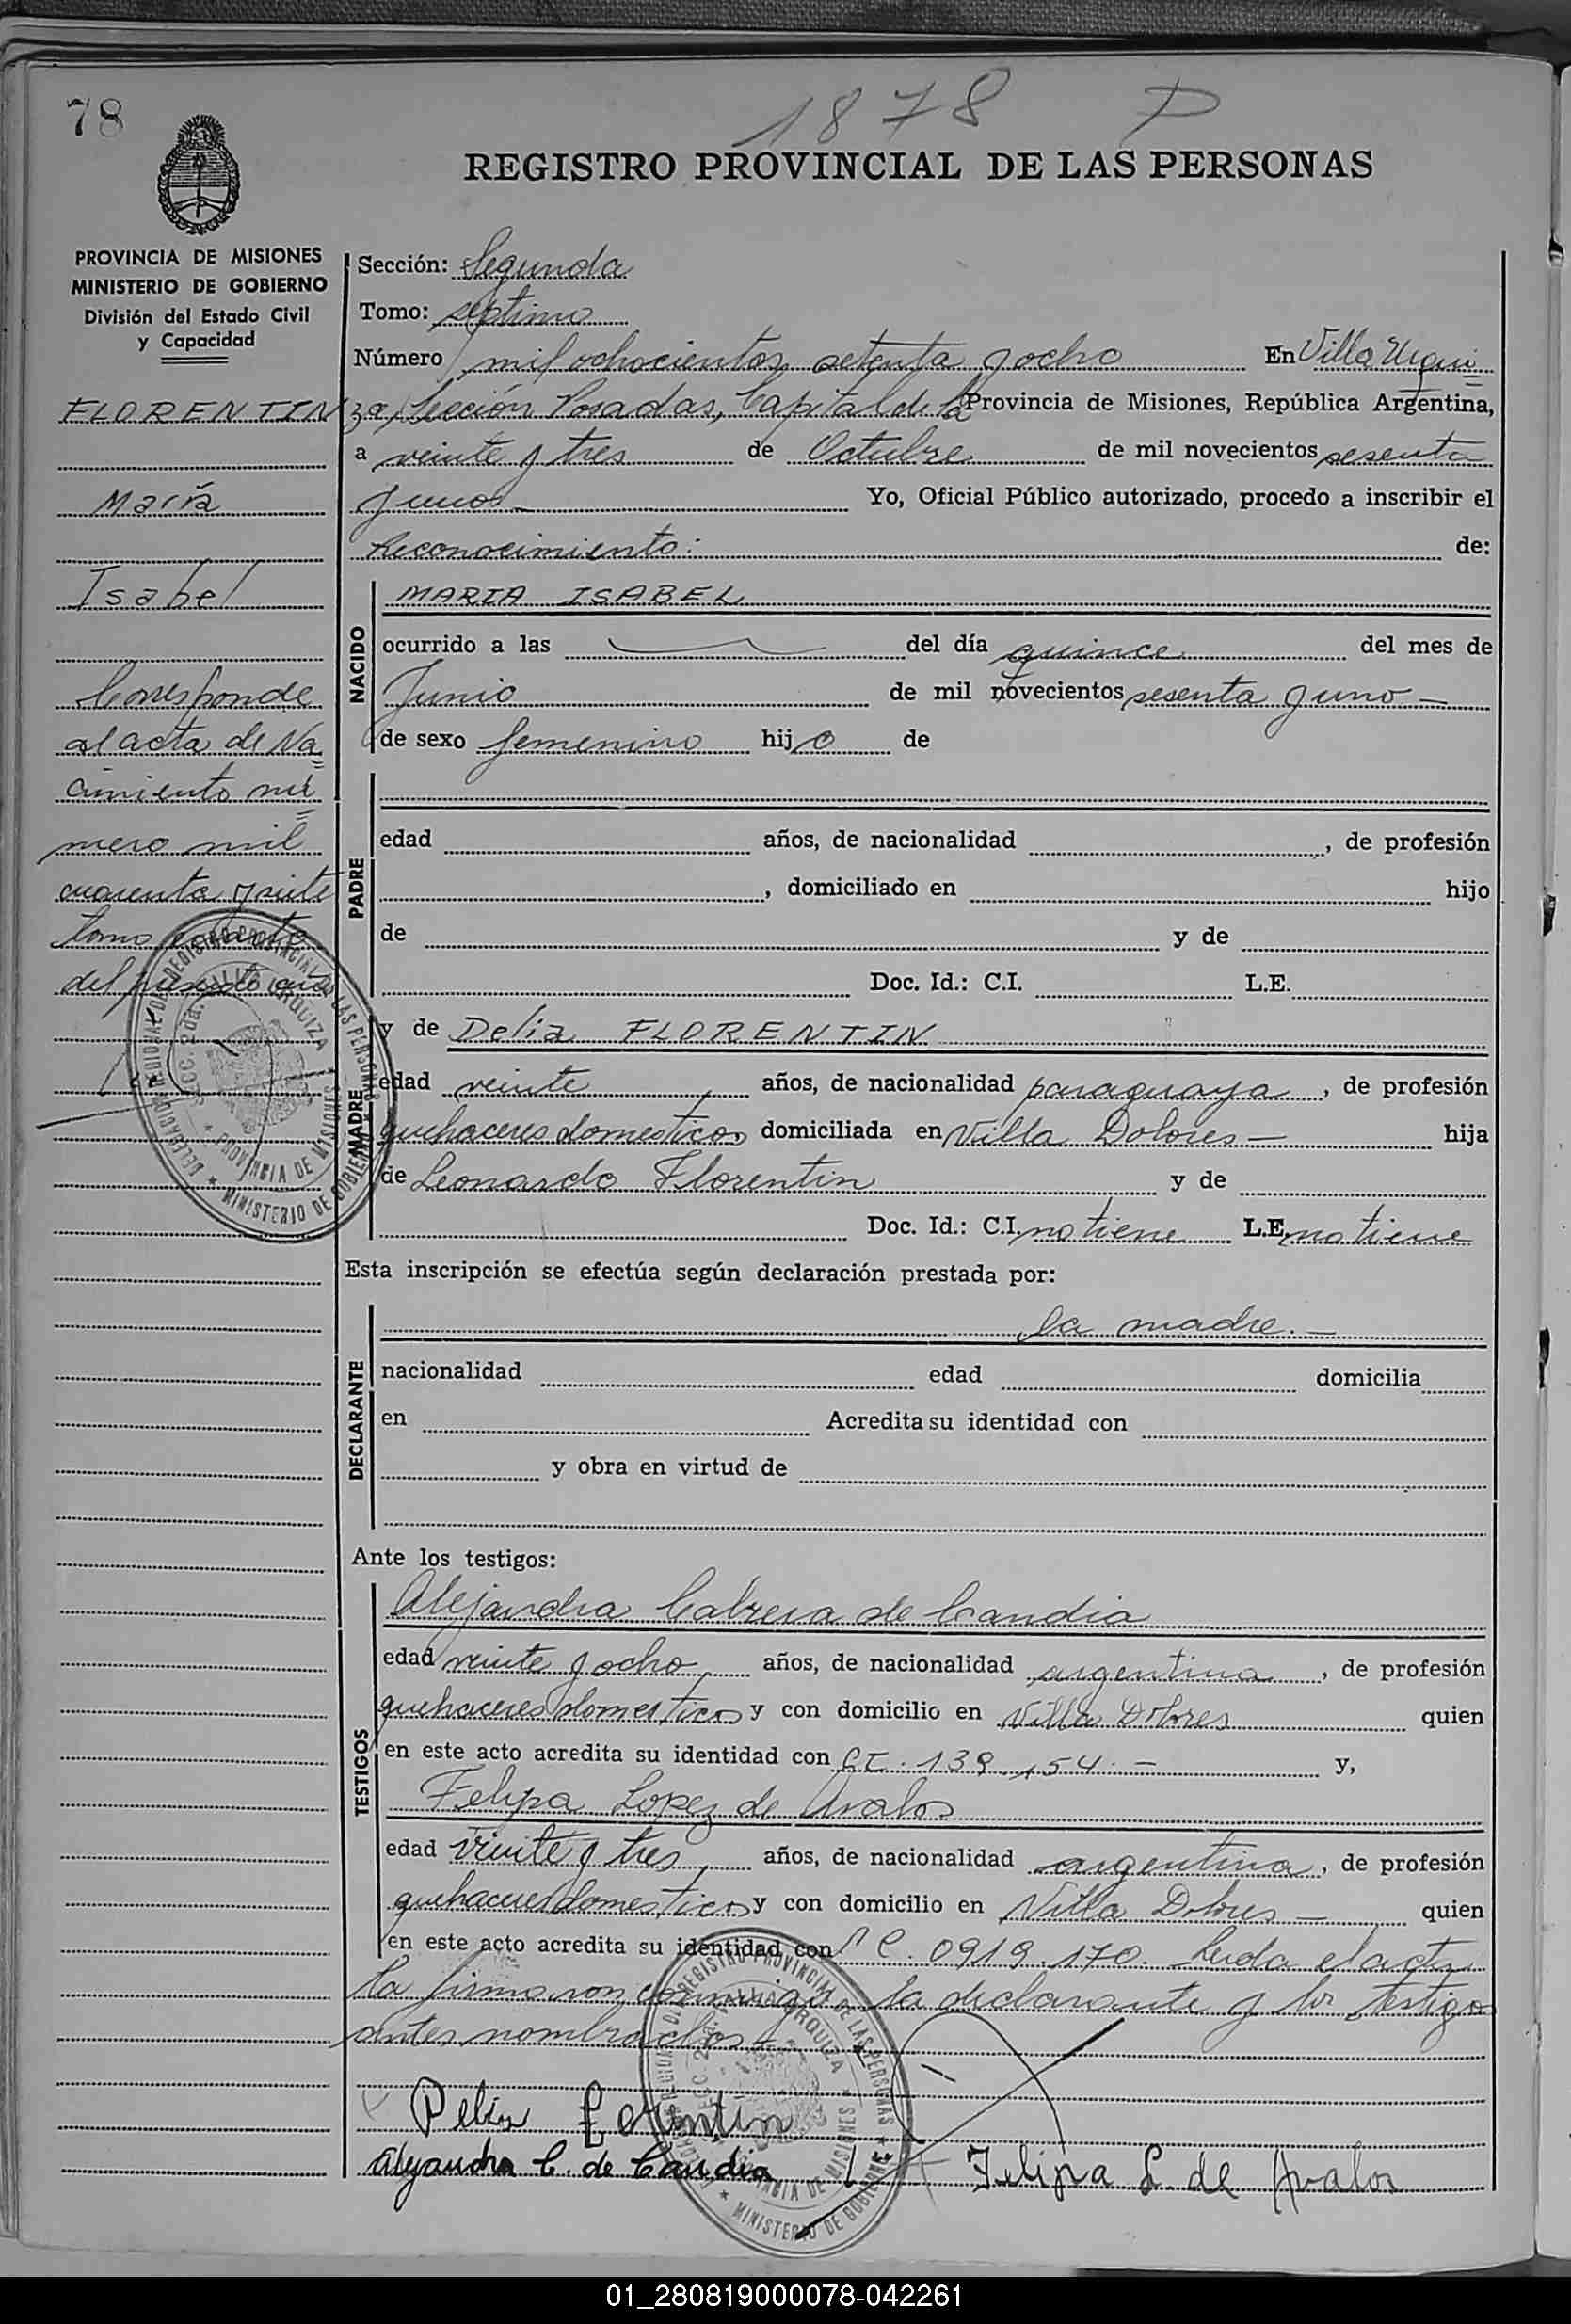 78
1878 P
REGISTRO PROVINCIAL DE LAS PERSONAS
PROVINCIA DE MISIONES
MINISTERIO DE GOBIERNO
División del Estado Civil
y Capacidad
FLORENTIN
María
Isabel
Corresponde
al acta de Na=
cimiento nú=
mero mil
cuarenta y siete
tomo
del
Sección: Segunda
Tomo: septimo
Número mil ochocientos setenta y ocho En Villa Urqui=
za, Sección Posadas, Capital de la Provincia de Misiones, República Argentina,
a veinte y tres de Octubre de mil novecientos sesenta
y uno Yo, Oficial Público autorizado, procedo a inscribir el
Reconocimiento: de:
NACIDO
MARIA ISABEL
ocurrido a las del día quince del mes de
Junio de mil novecientos sesenta y uno —
de sexo femenino hijo de
PADRE
edad años, de nacionalidad , de profesión
, domiciliado en hijo
de y de
Doc. Id.: C.I. L.E.
MADRE
y de Delia FLORENTIN
edad veinte años, de nacionalidad paraguaya, de profesión
quehaceres domesticos domiciliada en Villa Dolores — hija
de Leonardo Florentin y de
Doc. Id.: C.I. no tiene L.E. no tiene
Esta inscripción se efectúa según declaración prestada por:
DECLARANTE
la madre. —
nacionalidad edad domicilia
en Acredita su identidad con
y obra en virtud de
Ante los testigos:
TESTIGOS
Alejandra Cabrera de Candia
edad veinte y ocho años, de nacionalidad argentina, de profesión
quehaceres domesticos y con domicilio en Villa Dolores quien
en este acto acredita su identidad con CI. 139.154. — y,
Felipa Lopez de Avalos
edad veinte y tres años, de nacionalidad argentina, de profesión
quehaceres domesticos y con domicilio en Villa Dolores — quien
en este acto acredita su identidad con C. 0919.170. Leida el acta
la firmaron conmigo la declarante y los testigos
antes nombrados
Delia
Alejandra C. de Candia
Felipa L. de Avalos
DELEGACION REGIONAL DEL REGISTRO PROVINCIAL DE LAS PERSONAS
SECC. 2da. VILLA URQUIZA
PROVINCIA DE MISIONES
MINISTERIO DE GOBIERNO
REGISTRO PROVINCIAL DE LAS PERSONAS
SECC. 2da. VILLA URQUIZA
PROVINCIA DE MISIONES
MINISTERIO DE GOBIERNO
01_280819000078-042261